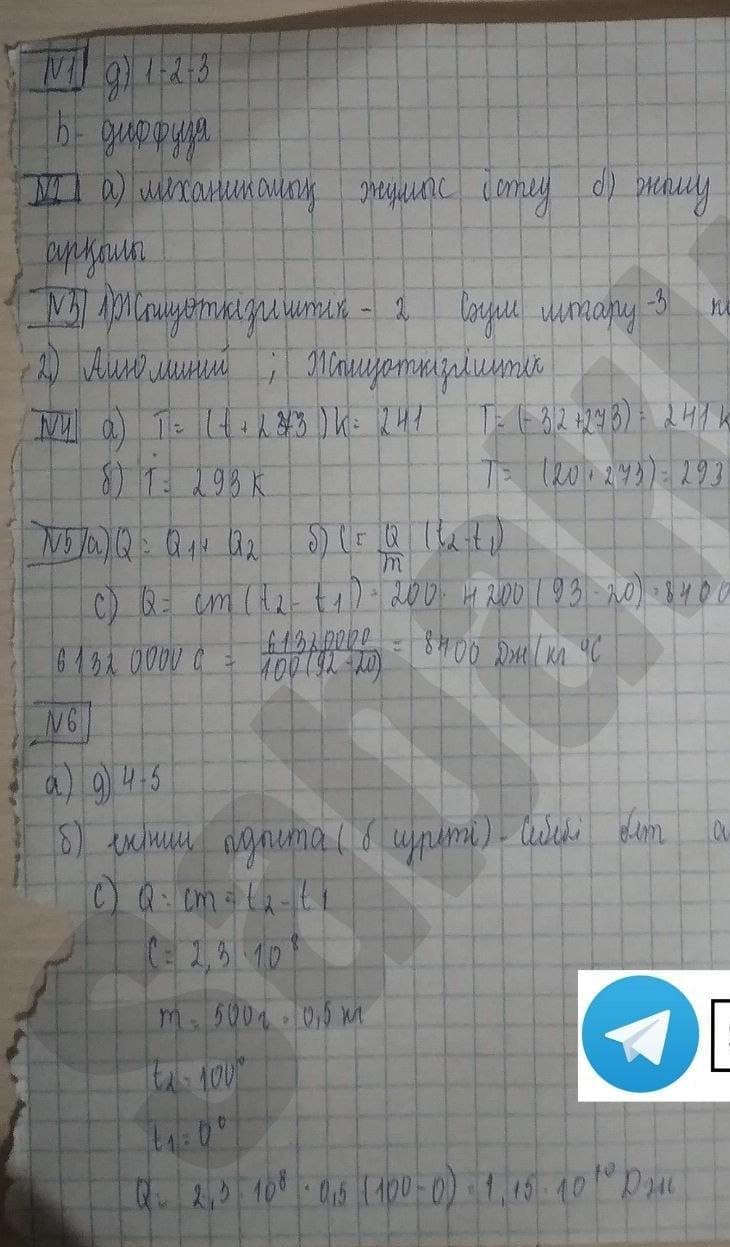 N1 д) 1-2-3
b- диффузя
N2 а) механикалық жұмыс істеу б) жылу
арқылы
N3 1) Жылуөткізгіштік - 2 Сәуле шығару -3
2) Алюминий ; Жылуөткізгіштік
N4 а) T = (t + 273) K = 241 T = (-32+273) = 241 K
б) T = 293 K T = (20+273) = 293
N5 а) Q = Q1 + Q2 б) C = Q/m (t2-t1)
с) Q = cm (t2 - t1) = 200 · 4200 (93 - 20) = 8400
61320000 C = 61320000/100(92-20) = 8400 Дж/кг °С
N6
а) д) 4-5
б) (б суреті) - Себебі бет
с) Q = cm = t2 - t1
C = 2,3 · 10⁸
m = 500 г = 0,5 кг
t2 = 100°
t1 = 0°
Q = 2,3 · 10⁸ · 0,5 (100 - 0) = 1,15 · 10¹⁰ Дж
Sabak